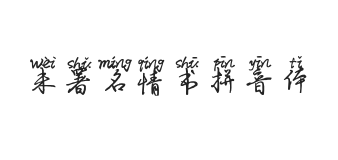 wèi shǔ míng qíng shū pīn yīn tǐ
未署名情书拼音体